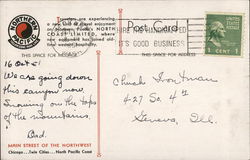 NORTHERN PACIFIC
Travelers are experiencing
a new kind of travel enjoyment
on Northern Pacific's NORTH
COAST LIMITED, where
new equipment has joined old-
time western hospitality.
Post Card
HIRE THE HANDICAPPED
IT'S GOOD BUSINESS
1 CENT 1
THIS SPACE FOR MESSAGE
THIS SPACE FOR
16 Oct 51
We are going down
this canyon now.
Snowing on the tops
of the mountains.
Dad.
Chuck
427 So. 4th
Geneva, Ill.
MAIN STREET OF THE NORTHWEST
Chicago...Twin Cities...North Pacific Coast